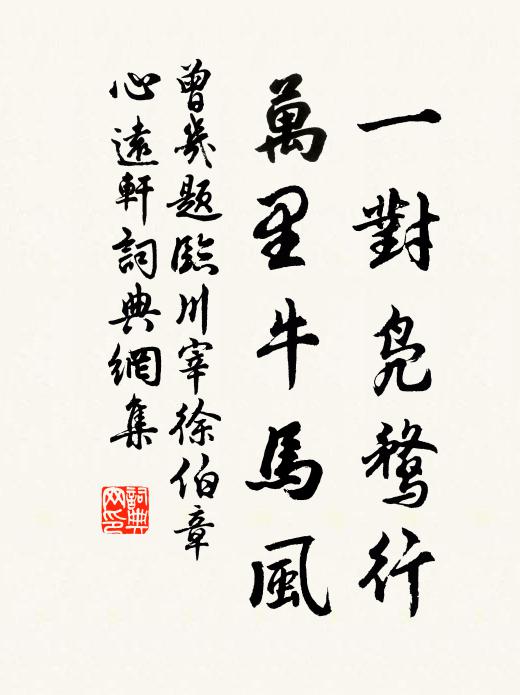 一對鳧鶩行
萬里牛馬風
曾幾題臨川宰徐伯章
心遠軒詞典網集
詞典网印